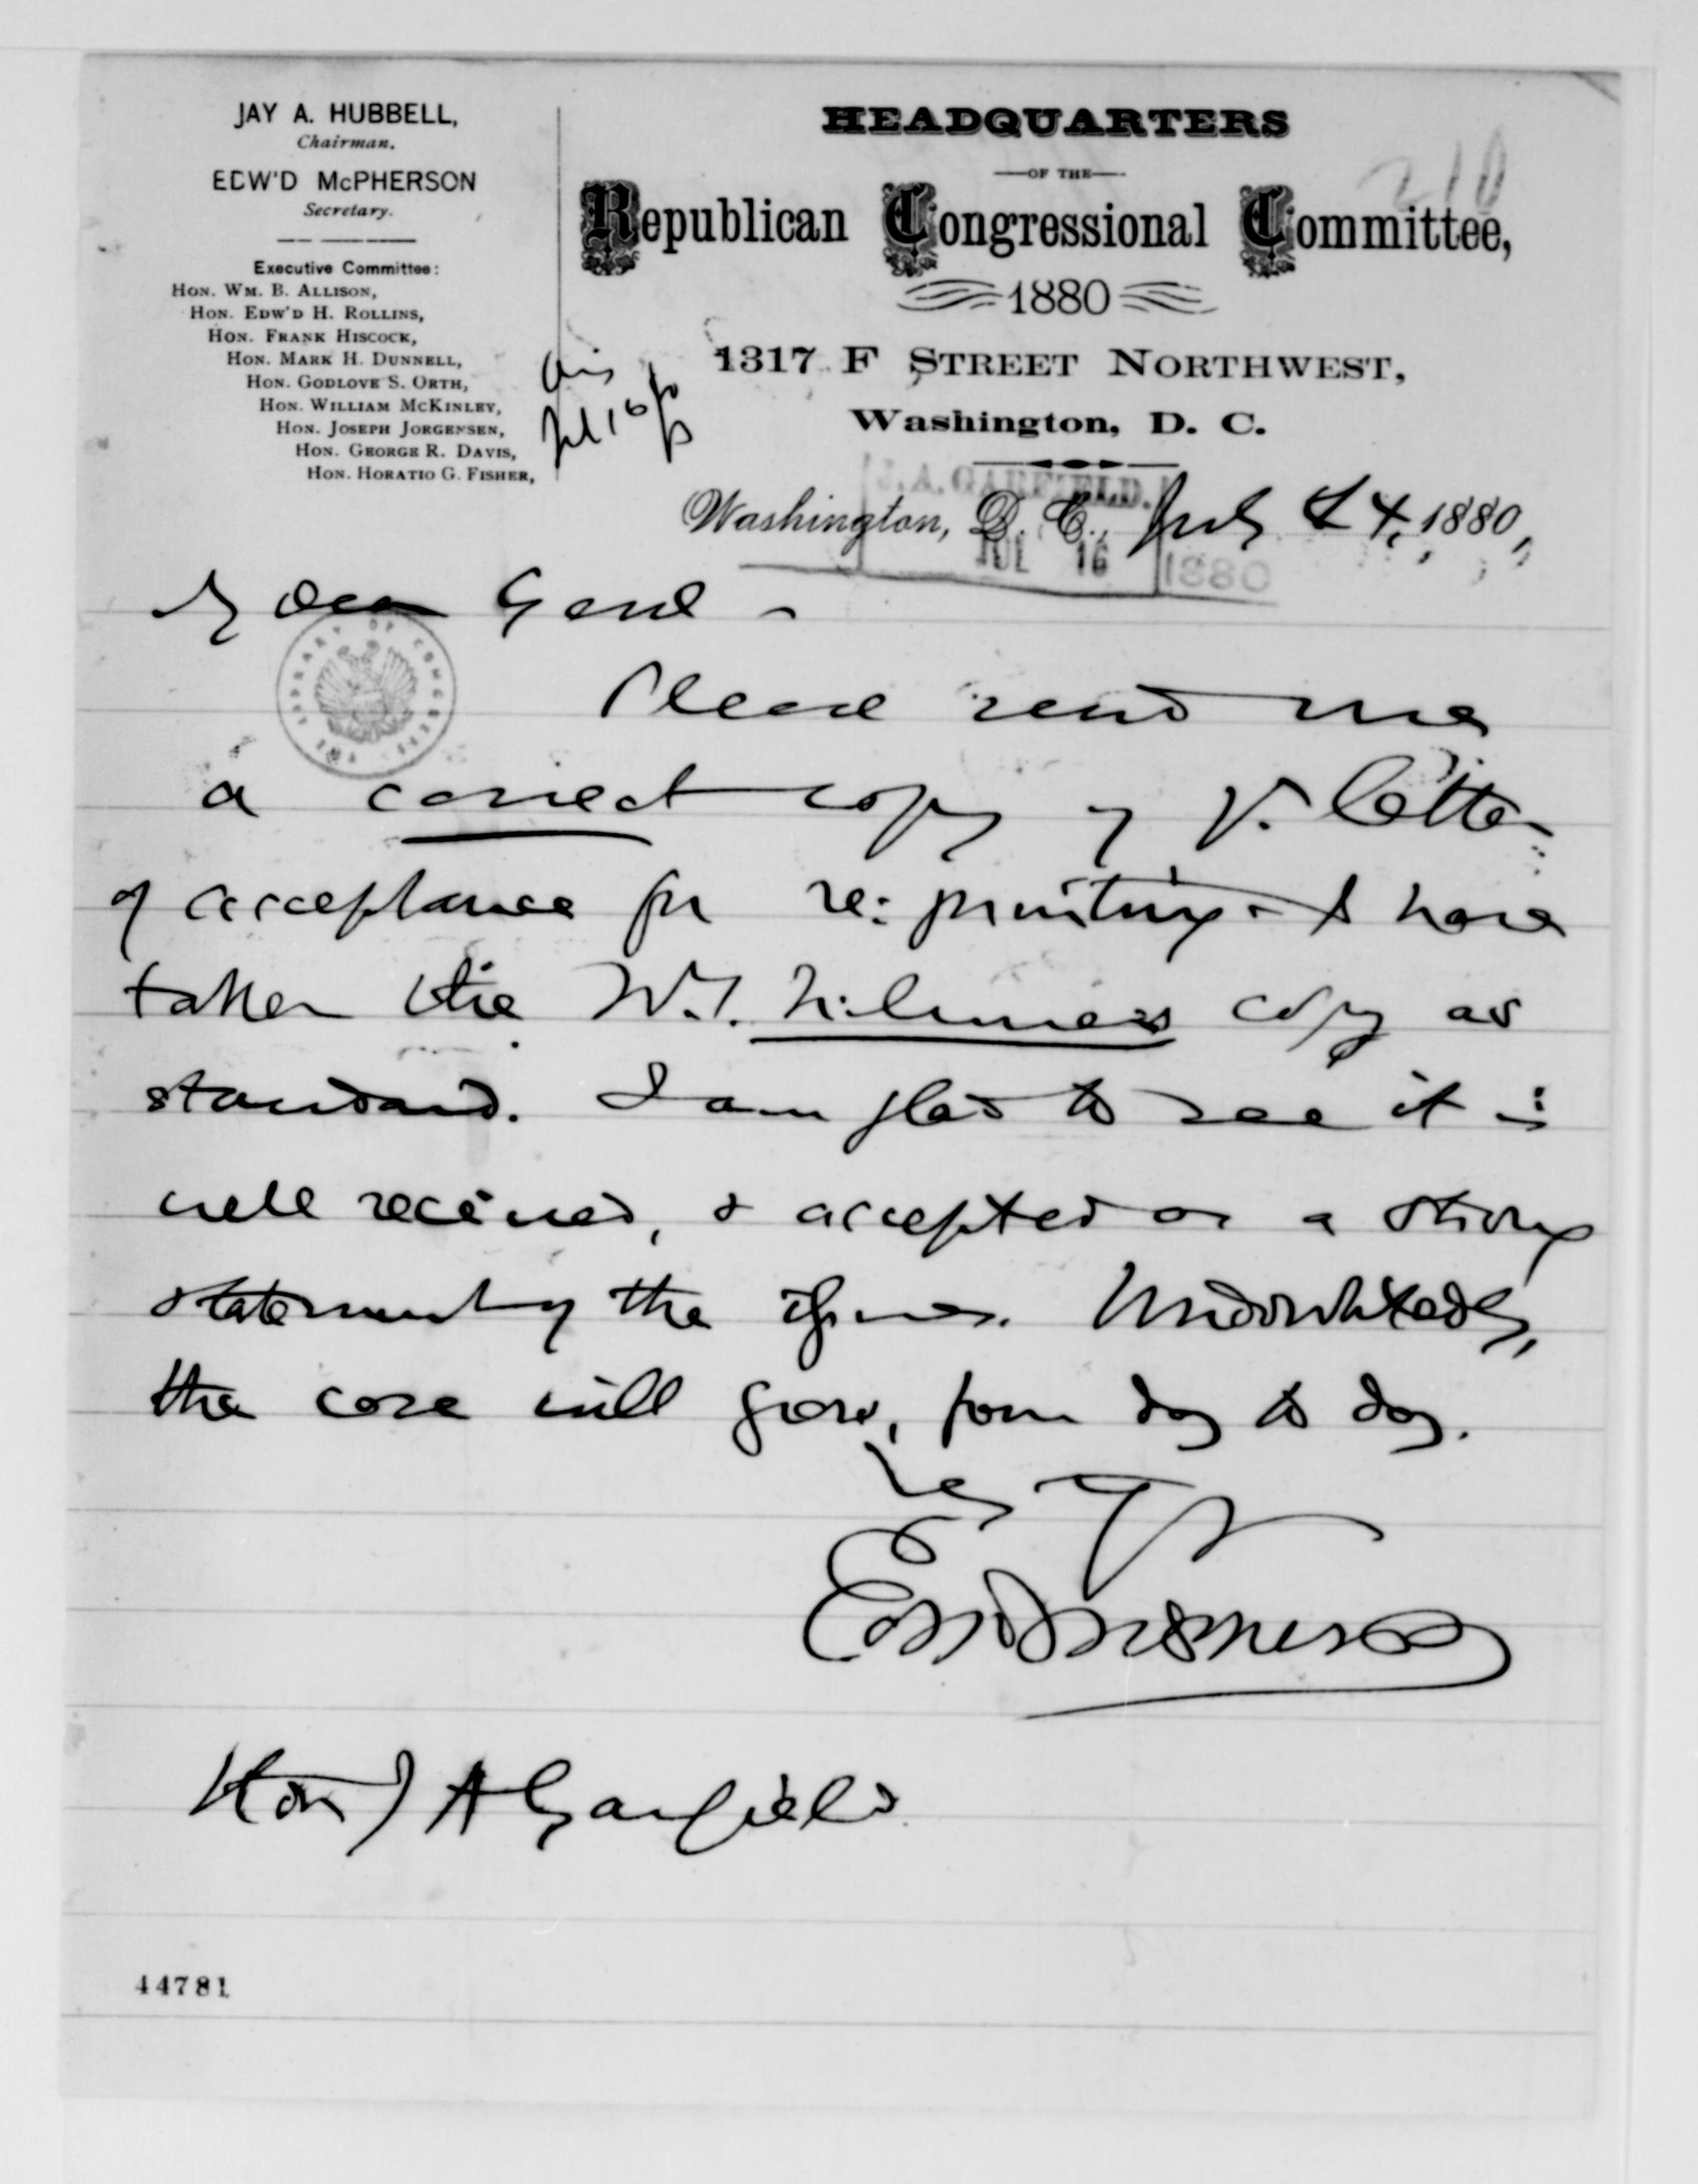 JAY A. HUBBELL,
Chairman.
EDW'D McPHERSON
Secretary.
Executive Committee:
HON. WM. B. ALLISON,
HON. EDW'D H. ROLLINS,
HON. FRANK HISCOCK,
HON. MARK H. DUNNELL,
HON. GODLOVE S. ORTH,
HON. WILLIAM MCKINLEY,
HON. JOSEPH JORGENSEN,
HON. GEORGE R. DAVIS,
HON. HORATIO G. FISHER,
HEADQUARTERS
OF THE
Republican Congressional Committee,
1880
1317 F STREET NORTHWEST,
Washington, D. C.
210
Ans
Jul 16
J. A. GARFIELD.
JUL 16 1880
Washington, D. C., July 14, 1880,
My Dear Genl -
Please send me
a correct copy of yr. letter
of acceptance for re:printing - I have
taken the N.Y. Tribune's copy as
standard. I am glad to see it is
well received, & accepted as a strong
statement of the issues. Undoubtedly,
the core will grow, from day to day.
Very Try
Edw McPherson
Hon J A Garfield
LIBRARY OF CONGRESS
44781